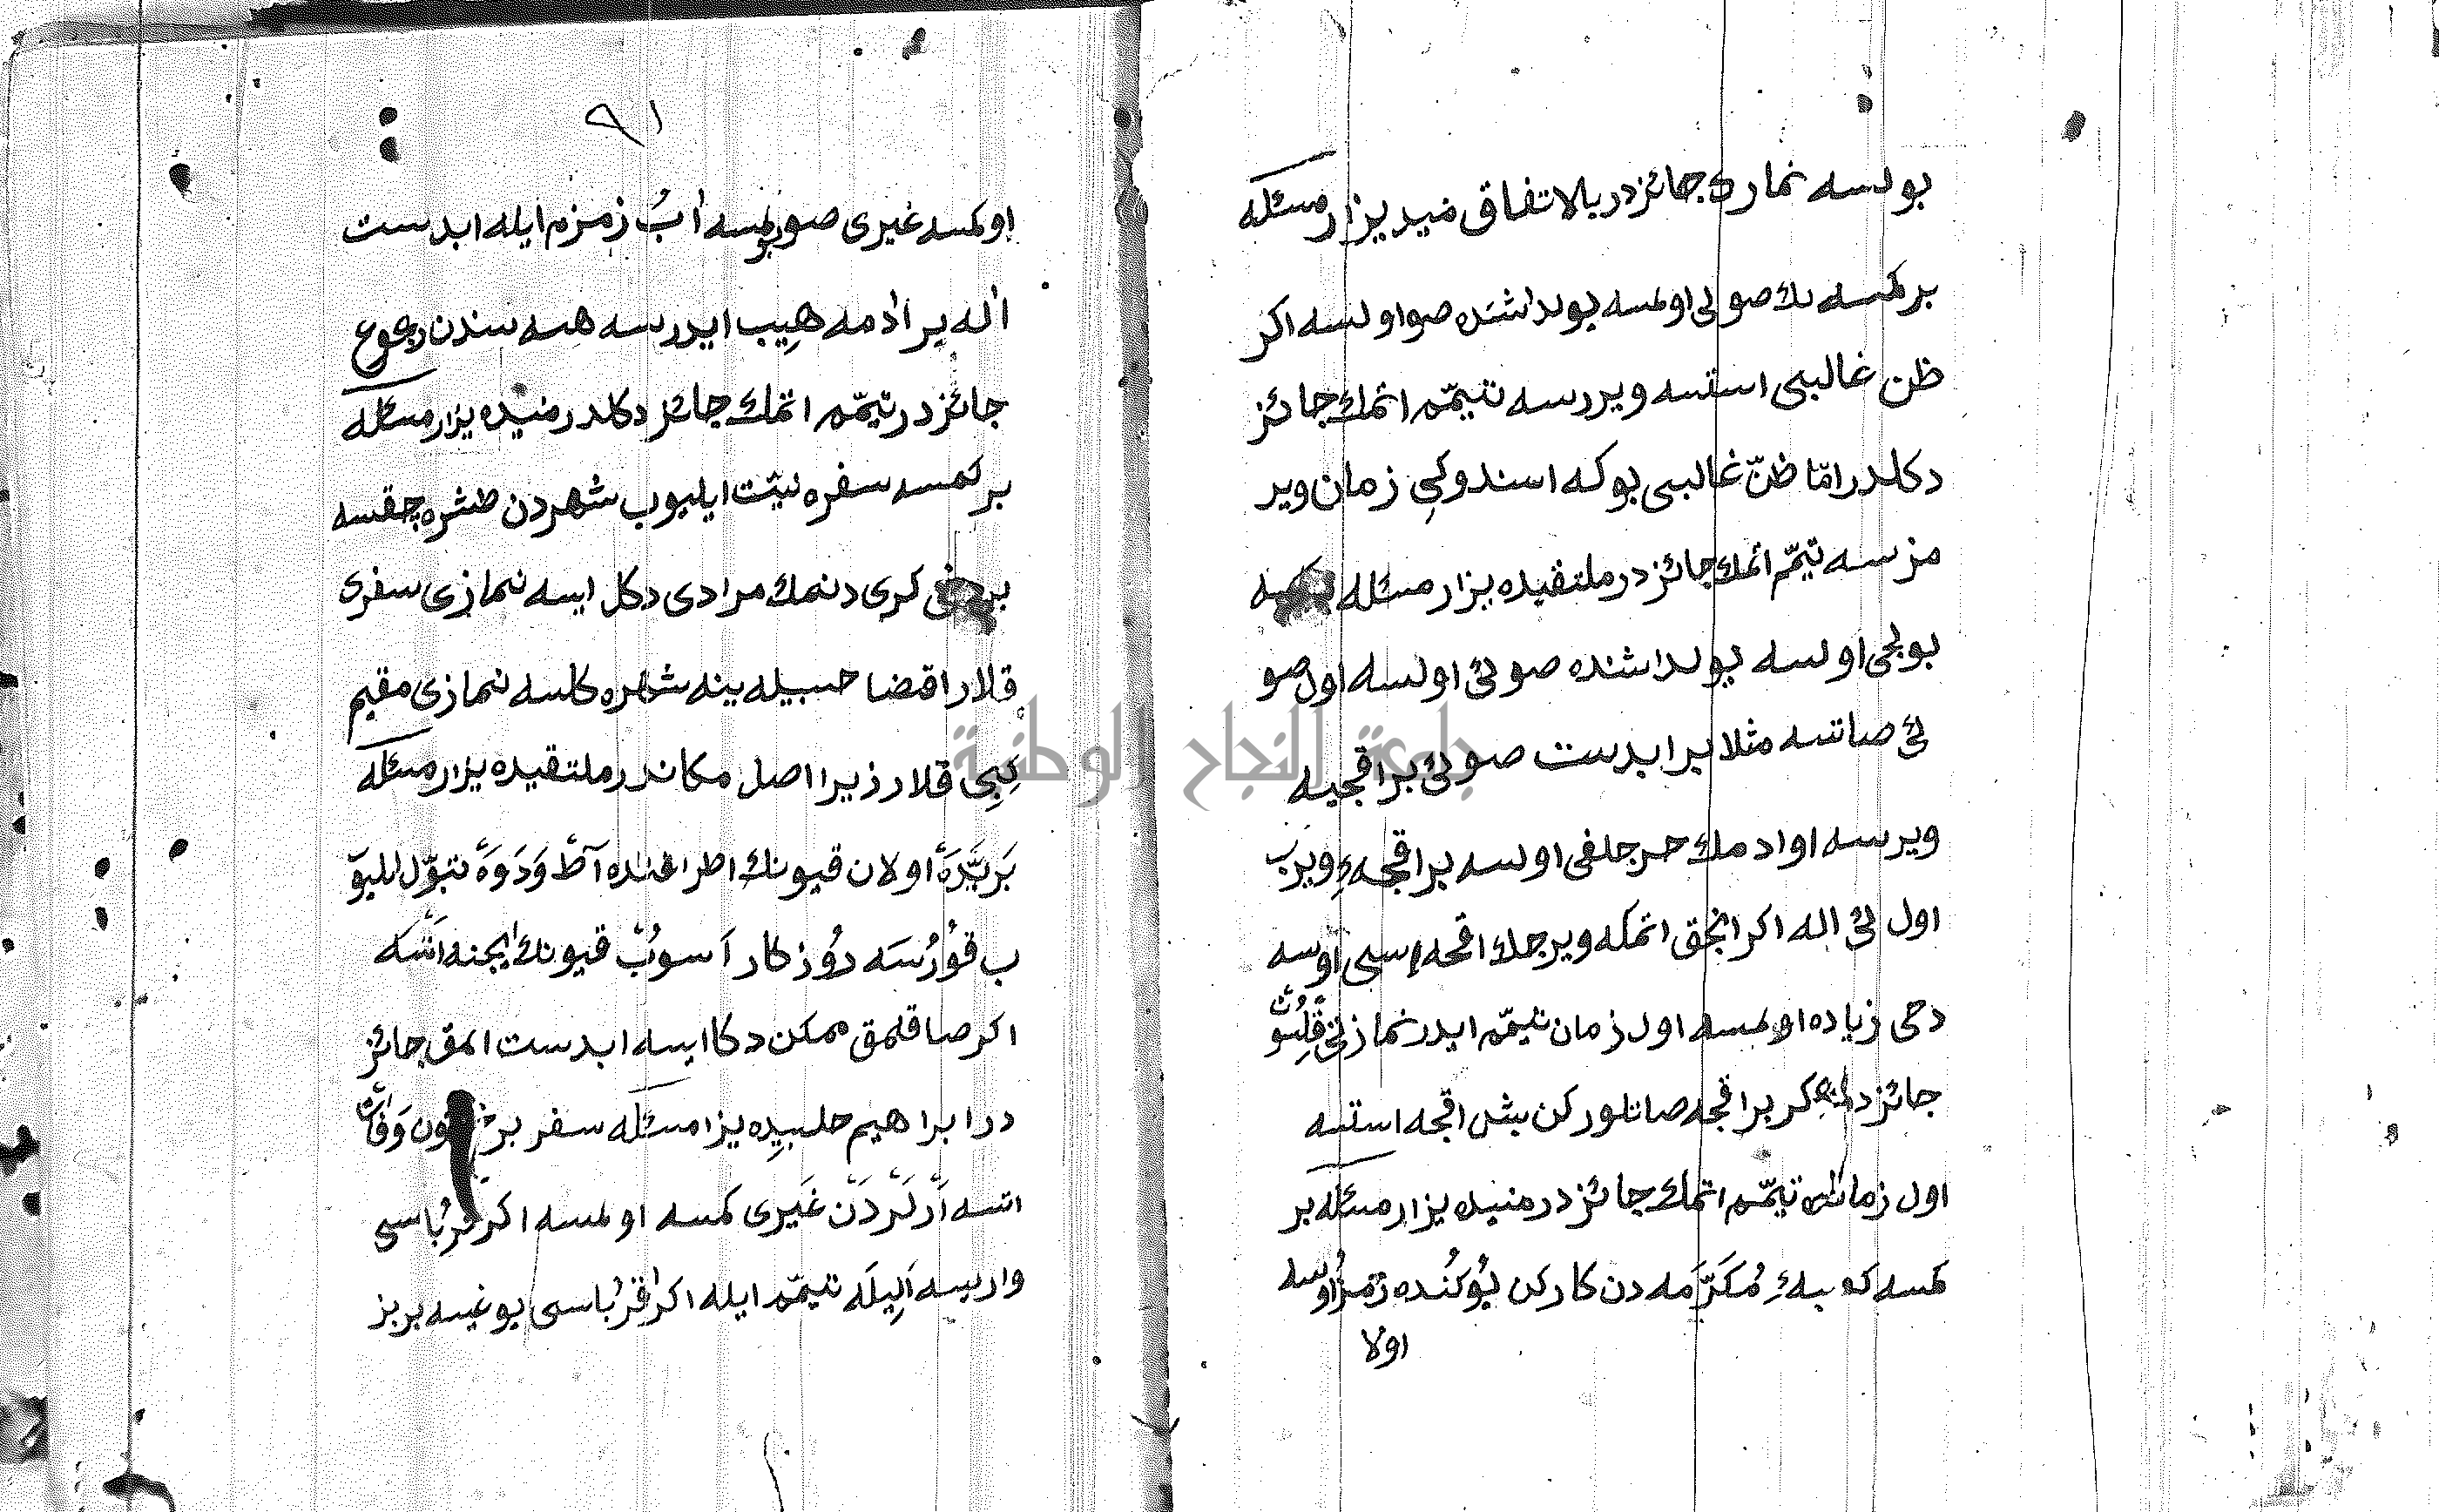 بولسه نمازی جائزدر بالاتفاق منیه یزار مسئله
بر کمسه نك صوئی اولمسه یولداشنده صو اولسه اکر
ظن غالبی استسه ویررسه تیمّم اتمك جائز
دکلدر امّا ظنّ غالبی بوکه اسندوکی زمان ویر
مزسه تیمّم اتمك جائزدر ملتقیده یزار مسئله بر کمسه
یولجی اولسه یولداشنده صوئی اولسه اول صو
ئی صاتسه مثلا بر ابدست صوئی بر اقجیه
ویرسه اوادمك حرجلغی اولسه بر اقجهء ویرب
اول ئی اله اکر انجق اتمکه ویرجك اقجه سی اولسه
دخی زیاده اولمسه اول زمان تیمّم ایدر نمازنی قلسه
جائزدر اکر بر اقجه صاتلورکن بش اقجه استسه
اول زمانده تیمّم اتمك جائزدر منیده یزار مسئله بر
کمسه کعبهء مُکَرَّمَه دن کلرکن یُوکُنده زمزم اولسه
اولا
٩١
اولمسه غیری صو بولمسه اٰبُ زمزم ایله ابدست
اله بر ادمه هِیب ایدرسه هسه سندن رجوع
جائزدر تیمّم اتمك جائز دکلدر منیده یزار مسئله
بر کمسه سفره نیّت ایلیوب شهردن طشره چقسه
بر دخی کری دنمك مرادی دکل ایسه نمازی سفری
قلار اقضا حسبیله ینه شهره کلسه نمازی مقیم
کِبِی قلار زیرا اصل مکاندر ملتقیده یزار مسئله
بَر یَرَدَهْ اولان قیونك اطرافنده آطْ وَدَوَهْ تبوّل ایلیو
ب قوُرُسَه رُوزکار اَسوُبْ قیونك ایچنه اتسه
اکر صاقلمق ممکن دکل ایسه ابدست المق جائز
در ابراهیم حلبیده یزار مسئله سفر بر خاتون وَفاتْ
اتسه اَرْلَرْدَنْ غَیری کمسه اولمسه اکر قرباسی
وار یسه اَلِیلَه تیمّم ایله اکر قرباسی یوغیسه بر بز